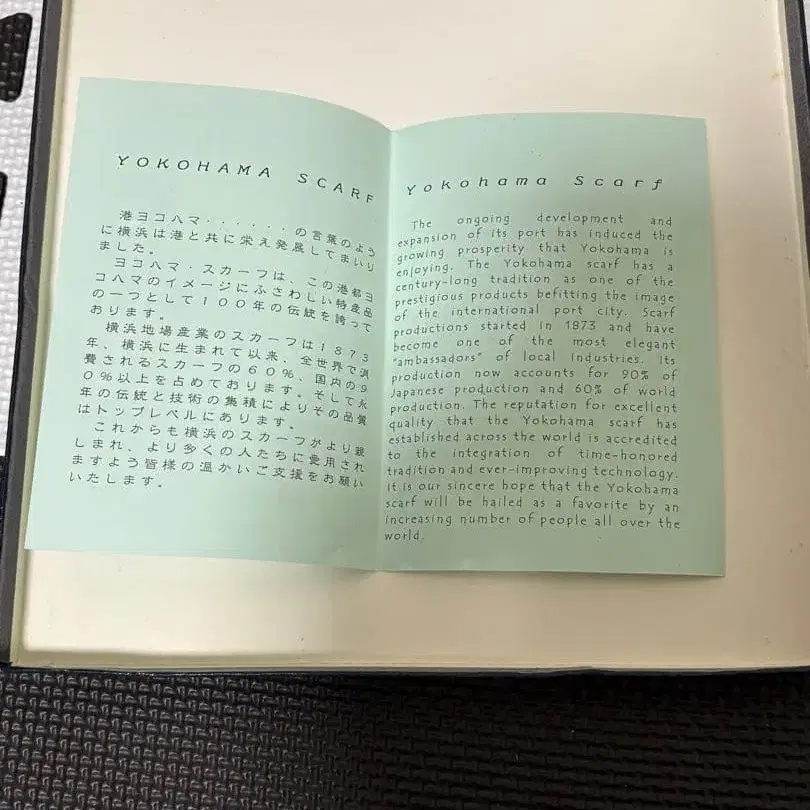 YOKOHAMA SCARF
港ヨコハマ・・・・・・の言葉のよう
に横浜は港と共に栄え発展してまいり
ました。
ヨコハマ・スカーフは、この港都ヨ
コハマのイメージにふさわしい特産品
の一つとして100年の伝統を誇って
おります。
横浜地場産業のスカーフは1873
年、横浜に生まれて以来、全世界で消
費されるスカーフの60%、国内の9
0%以上を占めております。そして永
年の伝統と技術の集積によりその品質
はトップレベルにあります。
これからも横浜のスカーフがより親
しまれ、より多くの人たちに愛用され
ますよう皆様の温かいご支援をお願い
いたします。
Yokohama Scarf
The ongoing development and
expansion of its port has induced the
growing prosperity that Yokohama is
enjoying. The Yokohama scarf has a
century-long tradition as one of the
prestigious products befitting the image
of the international port city. Scarf
productions started in 1873 and have
become one of the most elegant
"ambassadors" of local industries. Its
production now accounts for 90% of
Japanese production and 60% of world
production. The reputation for excellent
quality that the Yokohama scarf has
established across the world is accredited
to the integration of time-honored
tradition and ever-improving technology.
It is our sincere hope that the Yokohama
scarf will be hailed as a favorite by an
increasing number of people all over the
world.